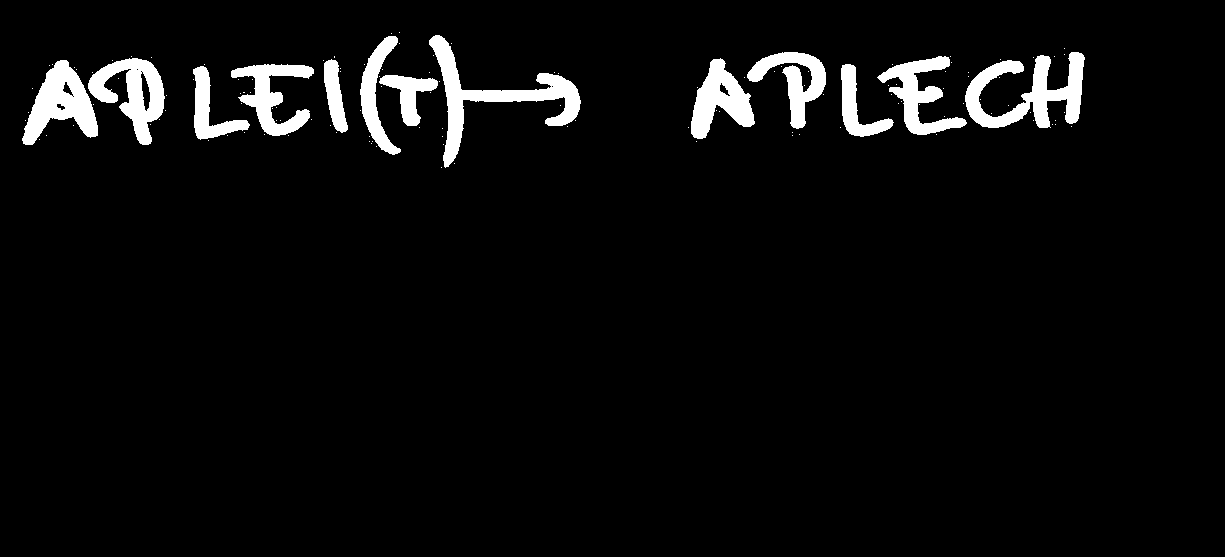 APLEI(T)→ APLECH